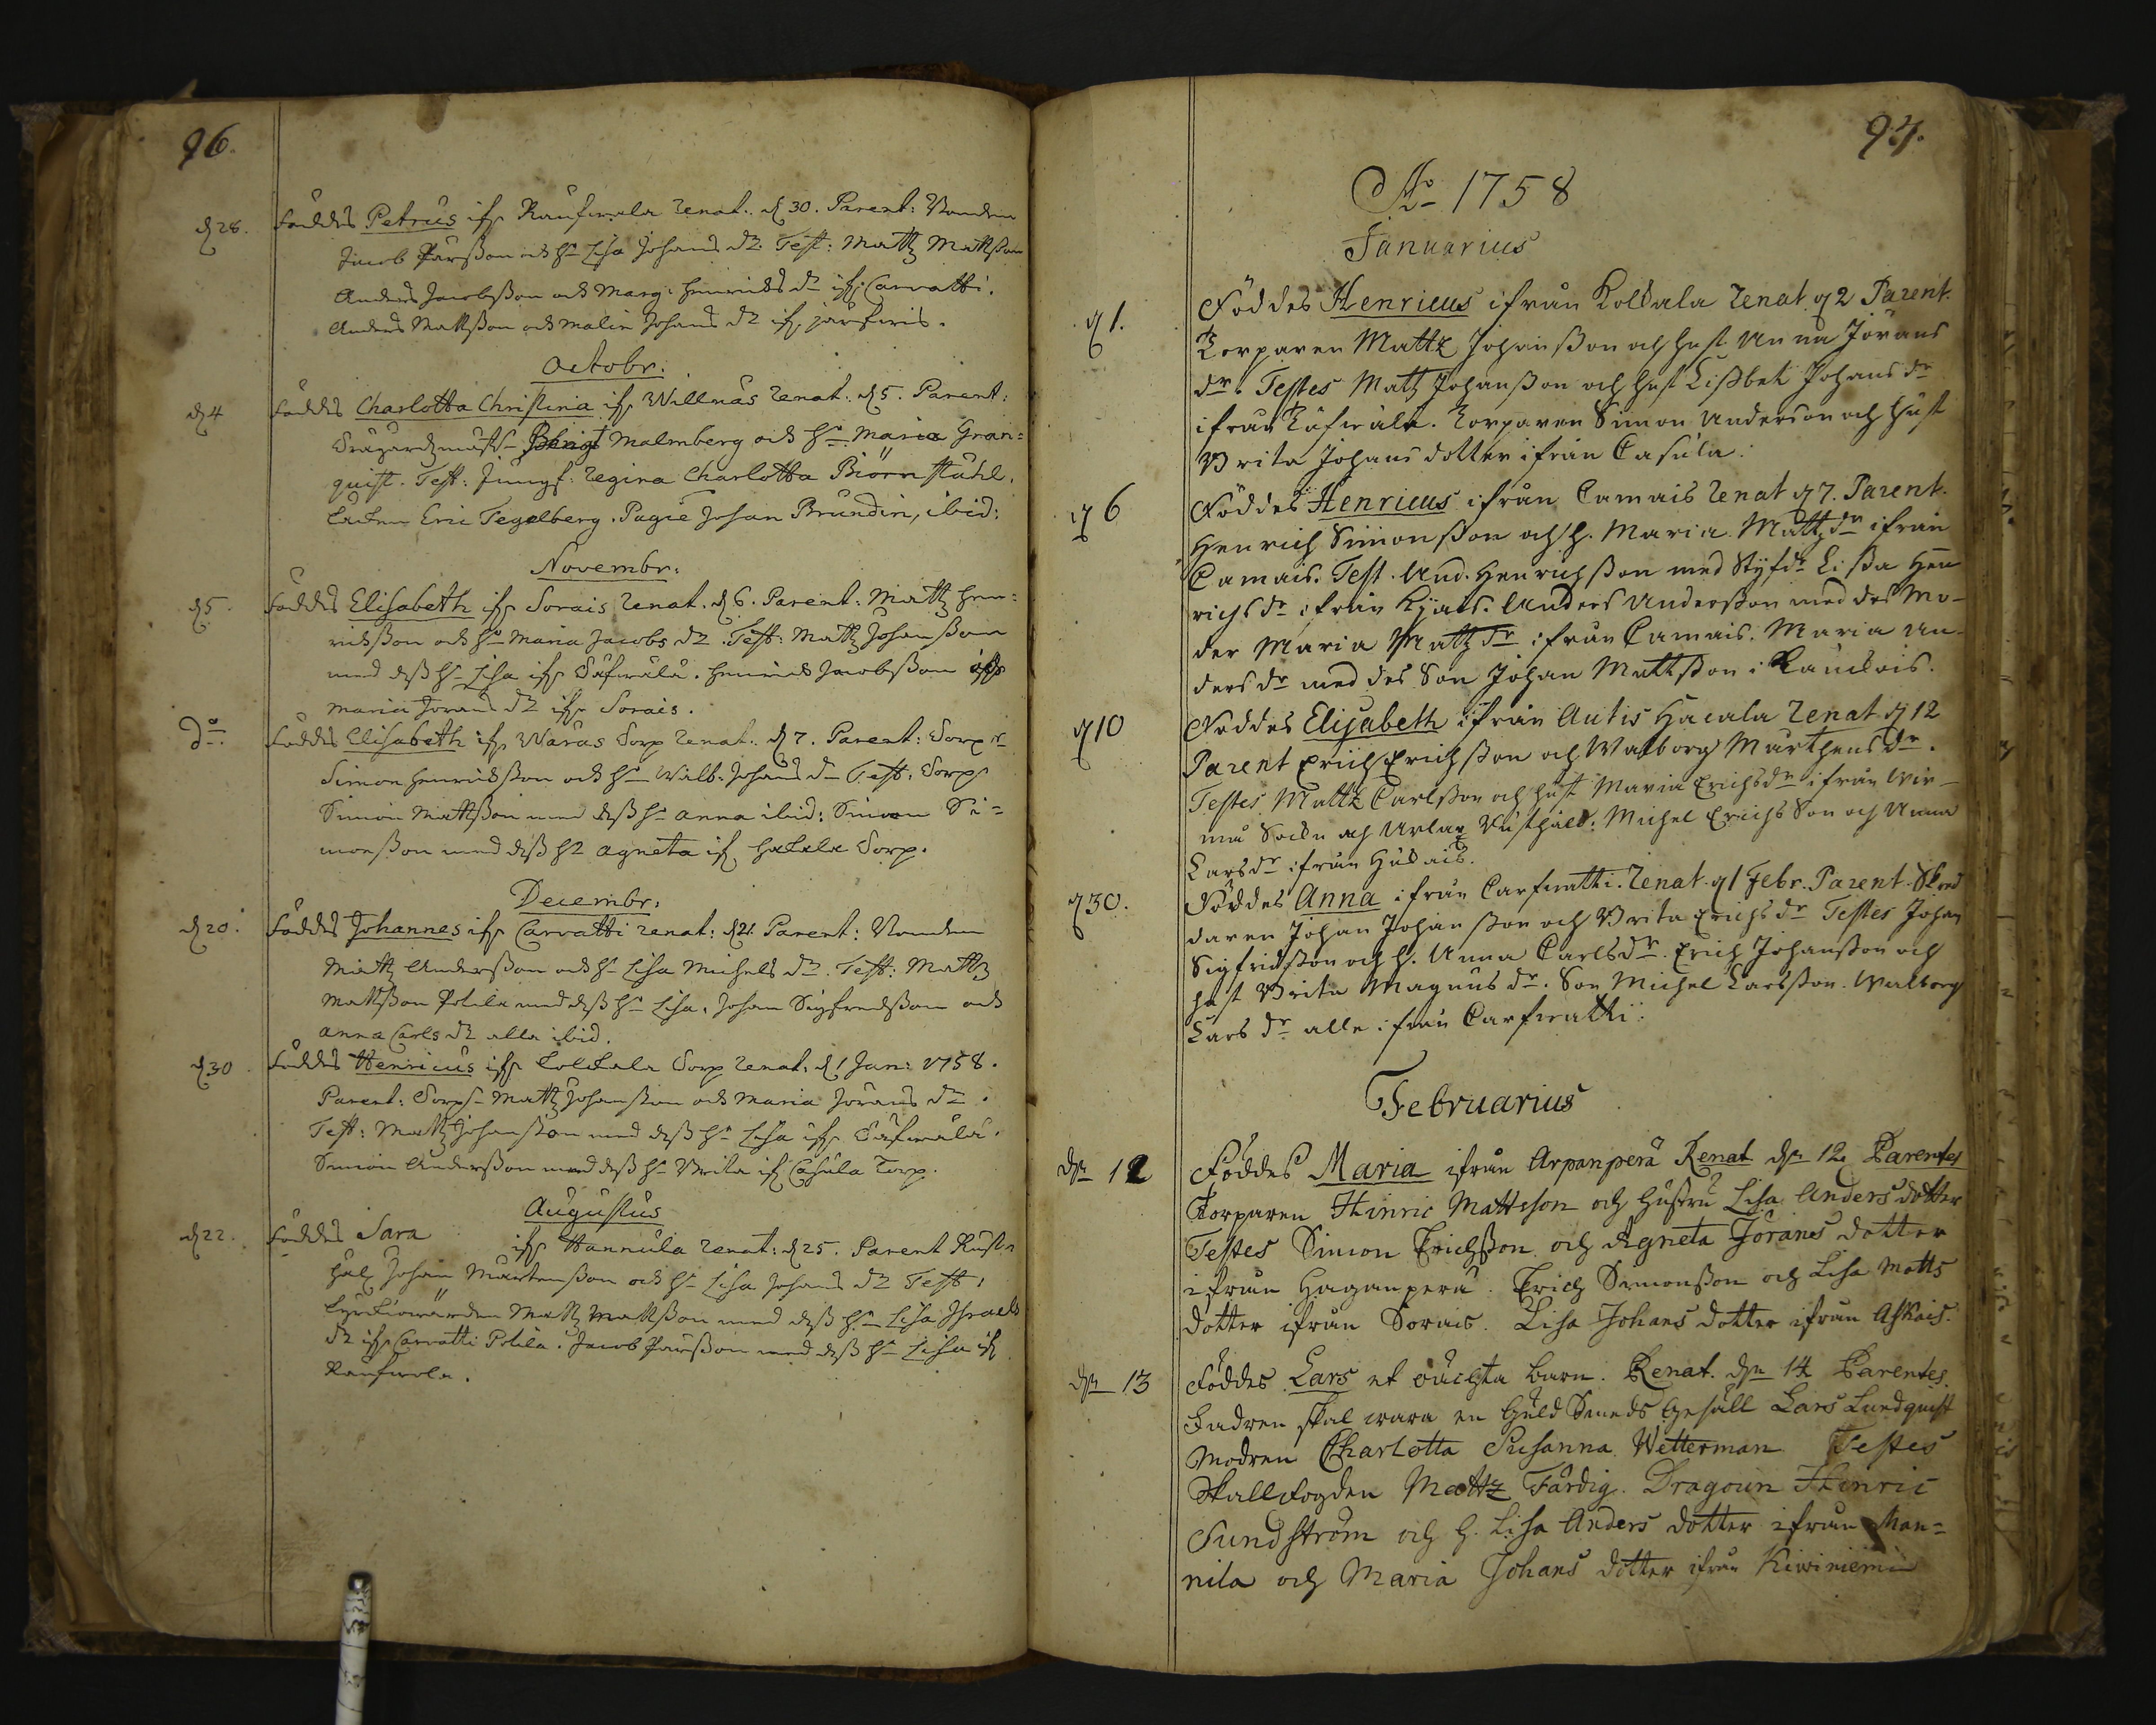 96.
d 28. Föddes Petrus ifr. Raufwola renat. d 30. Parent: Bonden
Jacob Pärsson och h. Lisa Johans dr. Test: Mattz Mattsson
Anders Jacobsson och Marg. Henrics dr ifr. Carvatti.
Anders Mattsson och Malin Johans dr ifr
Octobr.
d 4 Föddes Charlotta Christina ifr. Willnäs renat. d 5. Parent:
Malmberg och h. Maria Gran=
quist. Test: Jungf. Regina Charlotta Biörnståhl.
Eric Tegelberg. Pagie Johan Brundin, ibid:
Novembr:
d 5. Föddes Elisabeth ifr. Sorais renat. d 6. Parent: Mattz Hen=
ricsson och h. Maria Jacobs dr. Test: Mattz Johansson
med dess h. Lisa ifr. Täfwäla. Henric Jacobsson ifr
Maria Jörans dr ifr. Sorais.
do Föddes Elisabeth ifr Waras Torp renat. d 7. Parent: Torp.
Simon Henricsson och h. Walb. Johans dr Test: Torp.
Simon Mattsson med dess h. Anna ibid: Simon Si=
monsson med dess h. Agneta ifr Hakala Torp.
Decembr:
d 20. Föddes Johannes ifr Carvatti renat: d 21. Parent: Bonden
Mattz Andersson och h. Lisa Michels dr. Test: Mattz
Mattsson Polila med dess h. Lisa. Johan Sigfredsson och
Anna Carls dr alla ibid.
d 30 Föddes Henricus ifr Kolckala Torp renat. d 1 Jan: 1758.
Parent: Torp. Mattz Johansson och Maria Jörans dr.
Test: Mattz Johansson med dess h. Lisa ifr. Täfwäla.
Simon Andersson med dess h. Brita ifr Casula Torp.
Augustus
d 22. Föddes Sara ifr Hannula renat: d 25. Parent Rust=
håll. Johan Mårtensson och h. Lisa Johans dr Test:
Kyrkiowärden Mattz Mattsson med dess h. Lisa Israels
dr ifr Carvatti Polila. Jacob Pärsson med dess h. Lisa ifr
Raufwola.
97.
Ao 1758
Januarius
d 1. Föddes Henricus ifrån Kolckala renat d 2 Parent.
Torparen Mattz Johansson och hust Anna Jörans
dr. Testes Matz Johansson och hust Lissbet Johans dr
ifrån Täfwäla. Torparen Simon Anderson och Hust
Brita Johans dotter ifrån Casula.
d 6 Föddes Henricus ifrån Camais renat d 7. Parent.
Henrich Simonsson och h. Maria Mattz dr ifrån
Camais. Test. And. Henrichsson med Styfdr Lissa Hen
richs dr ifrån Kijais. Anders Andersson med des Mo-
der Maria Matz dr ifrån Camais. Maria An-
ders dr med des Son Johan Mattsson i Rauckois.
d 10 Föddes Elisabeth ifrån Autis Hacala renat d 12
Parent Erich Erichsson och Walborg Mårthens dr.
Testes Mattz Carlsson och hust Maria Erichs dr ifrån Wir-
mo Sockn och Rusthåll. Michel Erichs Son och Anna
Lars dr ifrån Husais.
d 30. Föddes Anna ifrån Carfwatti. renat d 1 Febr. Parent. Skred
daren Johan Johansson och Brita Erichs dr Testes Johan
Sigfridsson och h. Anna Carls dr. Erich Johansson och
hust Brita Magnus dr. Son Michel Larsson. Walborg
Lars dr alle ifrån Carfwatti.
Februarius
dn 12 Föddes Maria ifrån Arpanperä Renat dn 12 Parentes
Torparen Hinric Mattsson och Hustru Lisa Anders dotter
Testes Simon Erichsson och Agneta Jörans dotter
ifrån Haganperä. Erich Simonsson och Lisa Matts
dotter ifrån Sorais. Lisa Johans dotter ifrån Askais.
dn 13 Föddes Lars et oächta barn. Renat. dn 14 Parentes.
Fadren skal wara en Guld Smeds Gesäll Lars Lundquist
Modren Charlotta Susanna Wetterman Testes
Skallfogden Mattz Färdig. Dragoun Hinric
Sundström och h. Lisa Anders dotter ifrån Man=
nila och Maria Johans dotter ifrån Kiwiniemi